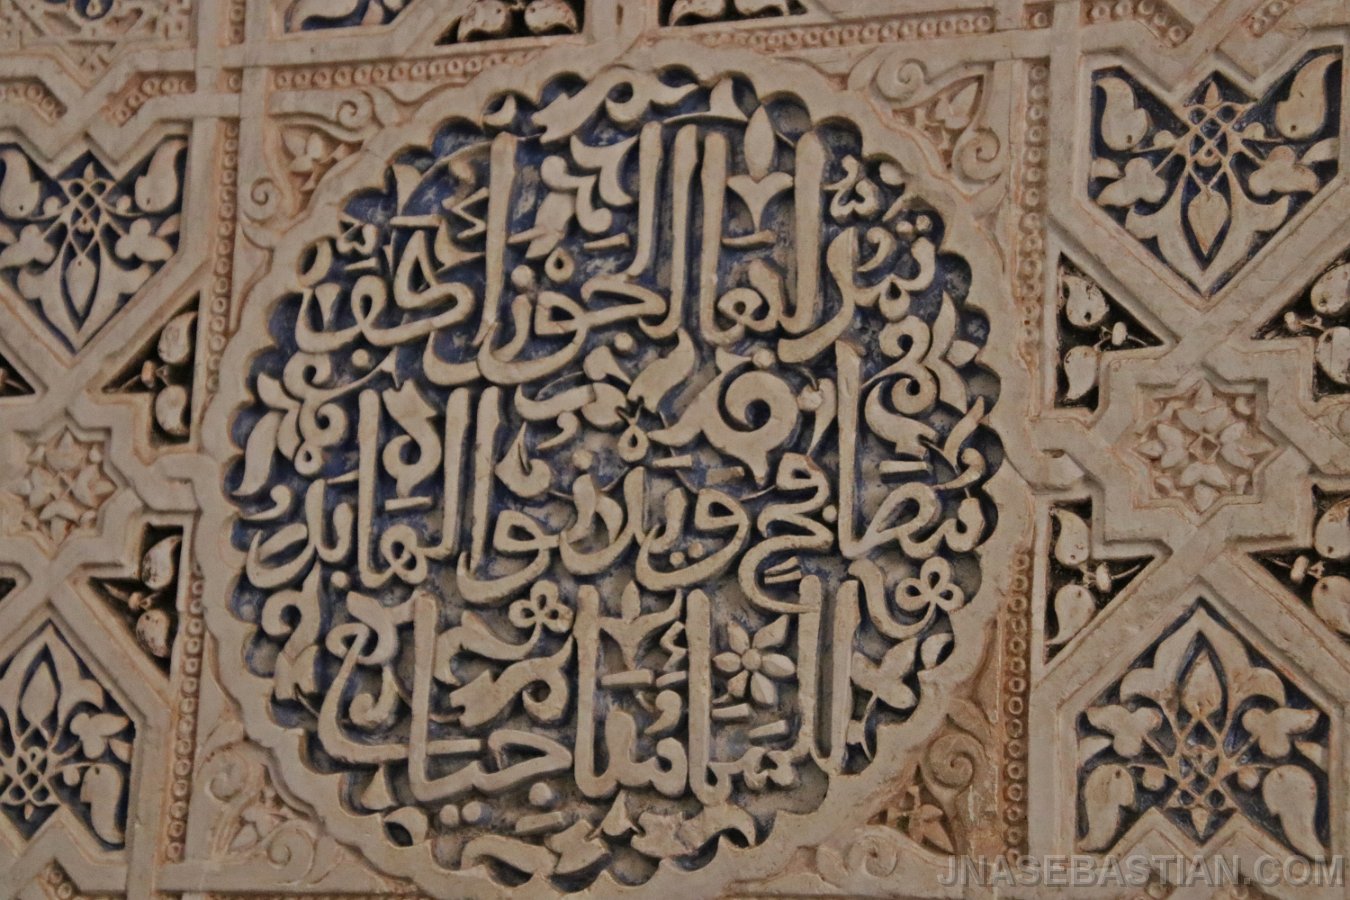 تمد لها الجوزاء كف
مصافح ويدنو لها بدر
السماء مناجيا
JNASEBASTIAN.COM